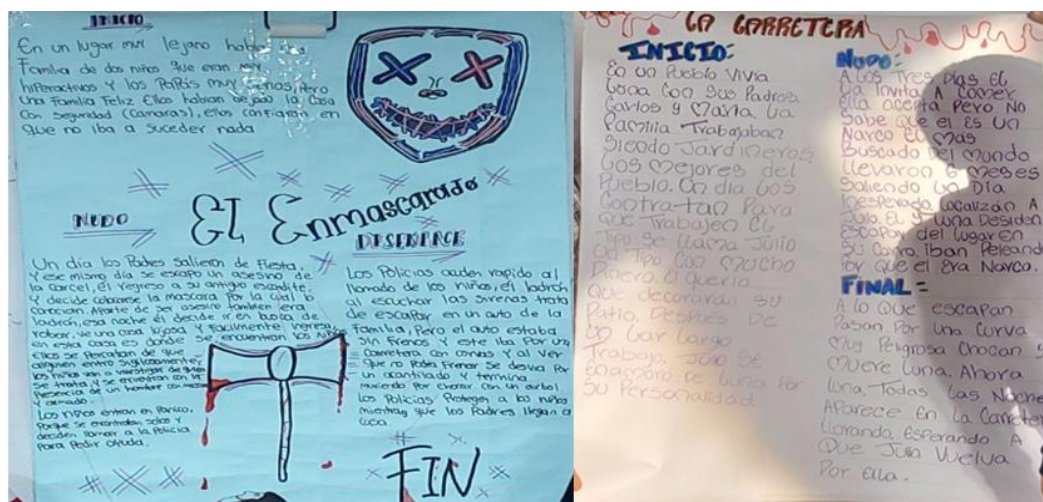 INICIO
En un lugar muy lejano habia una
Familia de dos niños que eran muy
hiperactivos y los Papás muy buenos, Pero
Una Familia Feliz Ellos habian dejado la Casa
Con Seguridad (Camaras), ellos confiaron en
que no iba a suceder nada
El Enmascarado
NUDO
Un día los Padres salieron de Fiesta,
Y ese mismo día se escapo un asesino de
la Carcel, el regreso a su antiguo escondite,
Y decide colocarse la mascara Por la cual lo
conocian. Aparte de ser asesino tambien era
ladrón, esa noche el decide ir en busca de
robar, ve una casa lujosa Y Facilmente ingresa
en esta casa es donde se encuentran los niños
Ellos se Percatan de que
alguien entro sigilosamente,
los niños van a investigar de quien
se trata, y se encuentran con la
Presencia de un hombre
y armado
Los niños entran en Panico,
Porque se encontraban solos Y
deciden llamar a la Policia
Para Pedir ayuda.
DESENLACE
Los Policias acuden rapido al
llamado de los niños, el ladrón
al escuchar las sirenas trata
de escapar en un auto de la
Familia, Pero el auto estaba
sin Frenos Y este iba Por una
Carretera con curvas Y al Ver
que no Podes Frenar se desvia Por
un acantilado Y termina
muriendo Por chocar con un arbol.
Los Policias Protegen a los niños
mientras que los Padres llegan a
casa.
FIN
LA CARRETERA
INICIO:
En un Pueblo Vivia
Luna Con Sus Padres
Carlos y Maria. La
Familia Trabajaban
Siendo Jardineros
Los Mejores del
Pueblo. Un dia Los
Contratan Para
Que Trabajen El
Tipo Se llama Julio
Un Tipo Con Mucho
Dinero. El queria
Que decoraran su
Patio. Despues De
Un Lar Largo
Trabajo. Julio Se
Enamoro De Luna Por
Su Personalidad
NUDO:
A Los Tres Dias El
La Invita A Comer
Ella acepta Pero No
Sabe que el Es Un
Narco El Mas
Buscado Del Mundo
Llevaron 6 Meses
Saliendo Un Dia
Inesperado Localizan A
Julio El Y Luna Desiden
Escapar del Lugar En
Su Carro. Iban Peleando
Por que el Era Narco.
FINAL =
A lo Que escapan
Pasan Por una Curva
Muy Peligrosa Chocan y
Muere Luna. Ahora
Luna. Todas Las Noche
Aparece En La Carreter
Llorando. Esperando A
Que Julio Vuelva
Por Ella.